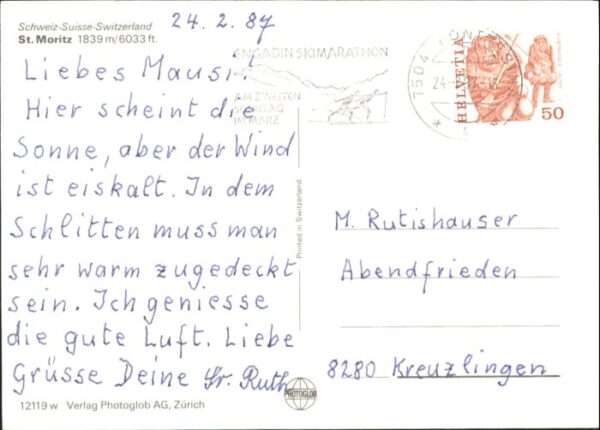 24.2.87
Schweiz-Suisse-Switzerland
St. Moritz 1839 m/6033 ft.
Liebes Mausi!
Hier scheint die
Sonne, aber der Wind
ist eiskalt. In dem
Schlitten muss man
sehr warm zugedeckt
sein. Ich geniesse
die gute Luft. Liebe
Grüsse Deine Sr. Ruth
12119 w Verlag Photoglob AG, Zürich
ENGADIN SKIMARATHON
AM ZWEITEN
SONNTAG
IM MÄRZ
7504
HELVETIA
50
Printed in Switzerland
M. Rutishauser
Abendfrieden
8280 Kreuzlingen
PHOTOGLOB